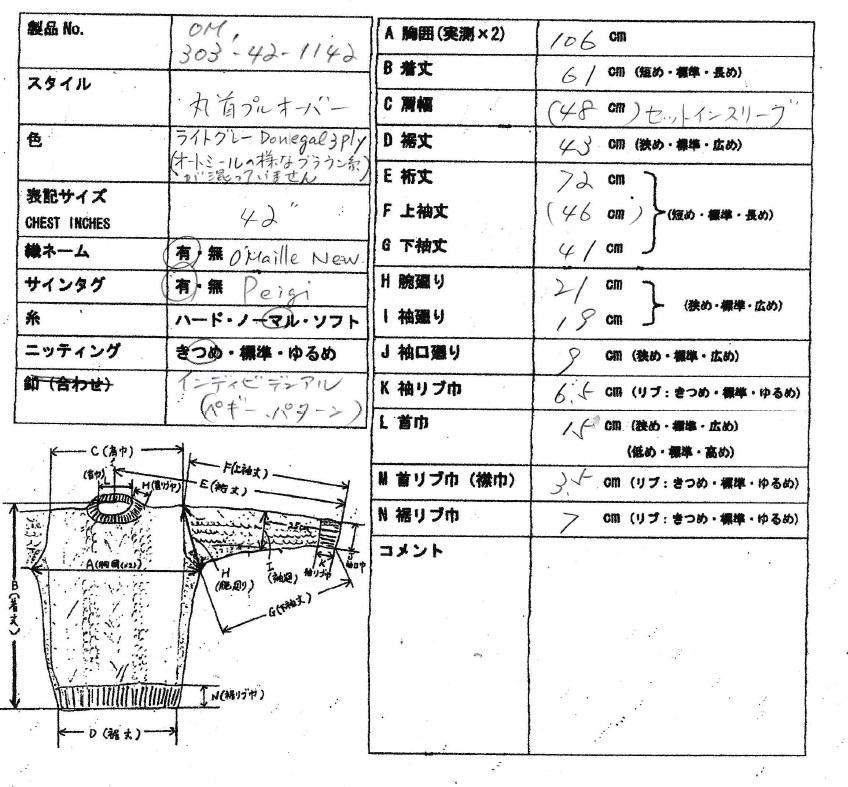 製品 No.
OM,
303-42-1142
スタイル
丸首プルオーバー
色
ライトグレー Donegal 3ply
(オートミールの様なブラウン糸)
が混っていません
表記サイズ
CHEST INCHES
42"
織ネーム
有・無 O'Maille New.
サインタグ
有・無 Peigi
糸
ハード・ノーマル・ソフト
ニッティング
きつめ・標準・ゆるめ
釦（合わせ）
インディビデュアル
(ペギー、パターン)
A 胸囲(実測×2) 106 cm
B 着丈 61 cm (短め・標準・長め)
C 肩幅 (48 cm) セットインスリーブ
D 裾丈 43 cm (狭め・標準・広め)
E 裄丈 72 cm
F 上袖丈 (46 cm) (短め・標準・長め)
G 下袖丈 41 cm
H 腕廻り 21 cm
I 袖廻り 19 cm (狭め・標準・広め)
J 袖口廻り 9 cm (狭め・標準・広め)
K 袖リブ巾 6.5 cm (リブ：きつめ・標準・ゆるめ)
L 首巾 15 cm (狭め・標準・広め)
(低め・標準・高め)
M 首リブ巾（襟巾） 3.5 cm (リブ：きつめ・標準・ゆるめ)
N 裾リブ巾 7 cm (リブ：きつめ・標準・ゆるめ)
コメント
C(肩巾)
F(上袖丈)
E(裄丈)
(首巾)
L
M(首リブ巾)
A(胸囲(×2))
B(着丈)
H
(腕廻り)
I
(袖廻)
K
袖リブ巾
J
袖口巾
G(下袖丈)
N(裾リブ巾)
D(裾丈)